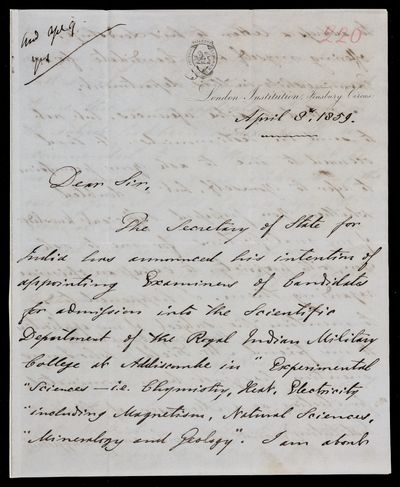 Ansd Apl 9
yes
220
London Institution, Finsbury Circus.
April 8th, 1859.
Dear Sir,
The Secretary of State for
India has announced his intention of
appointing Examiners of Candidates
for admission into the Scientific
Department of the Royal Indian Military
College at Addiscombe in "Experimental
"Sciences — i.e. Chymistry, Heat, Electricity
"including Magnetism, Natural Sciences,
"Mineralogy and Geology". I am about